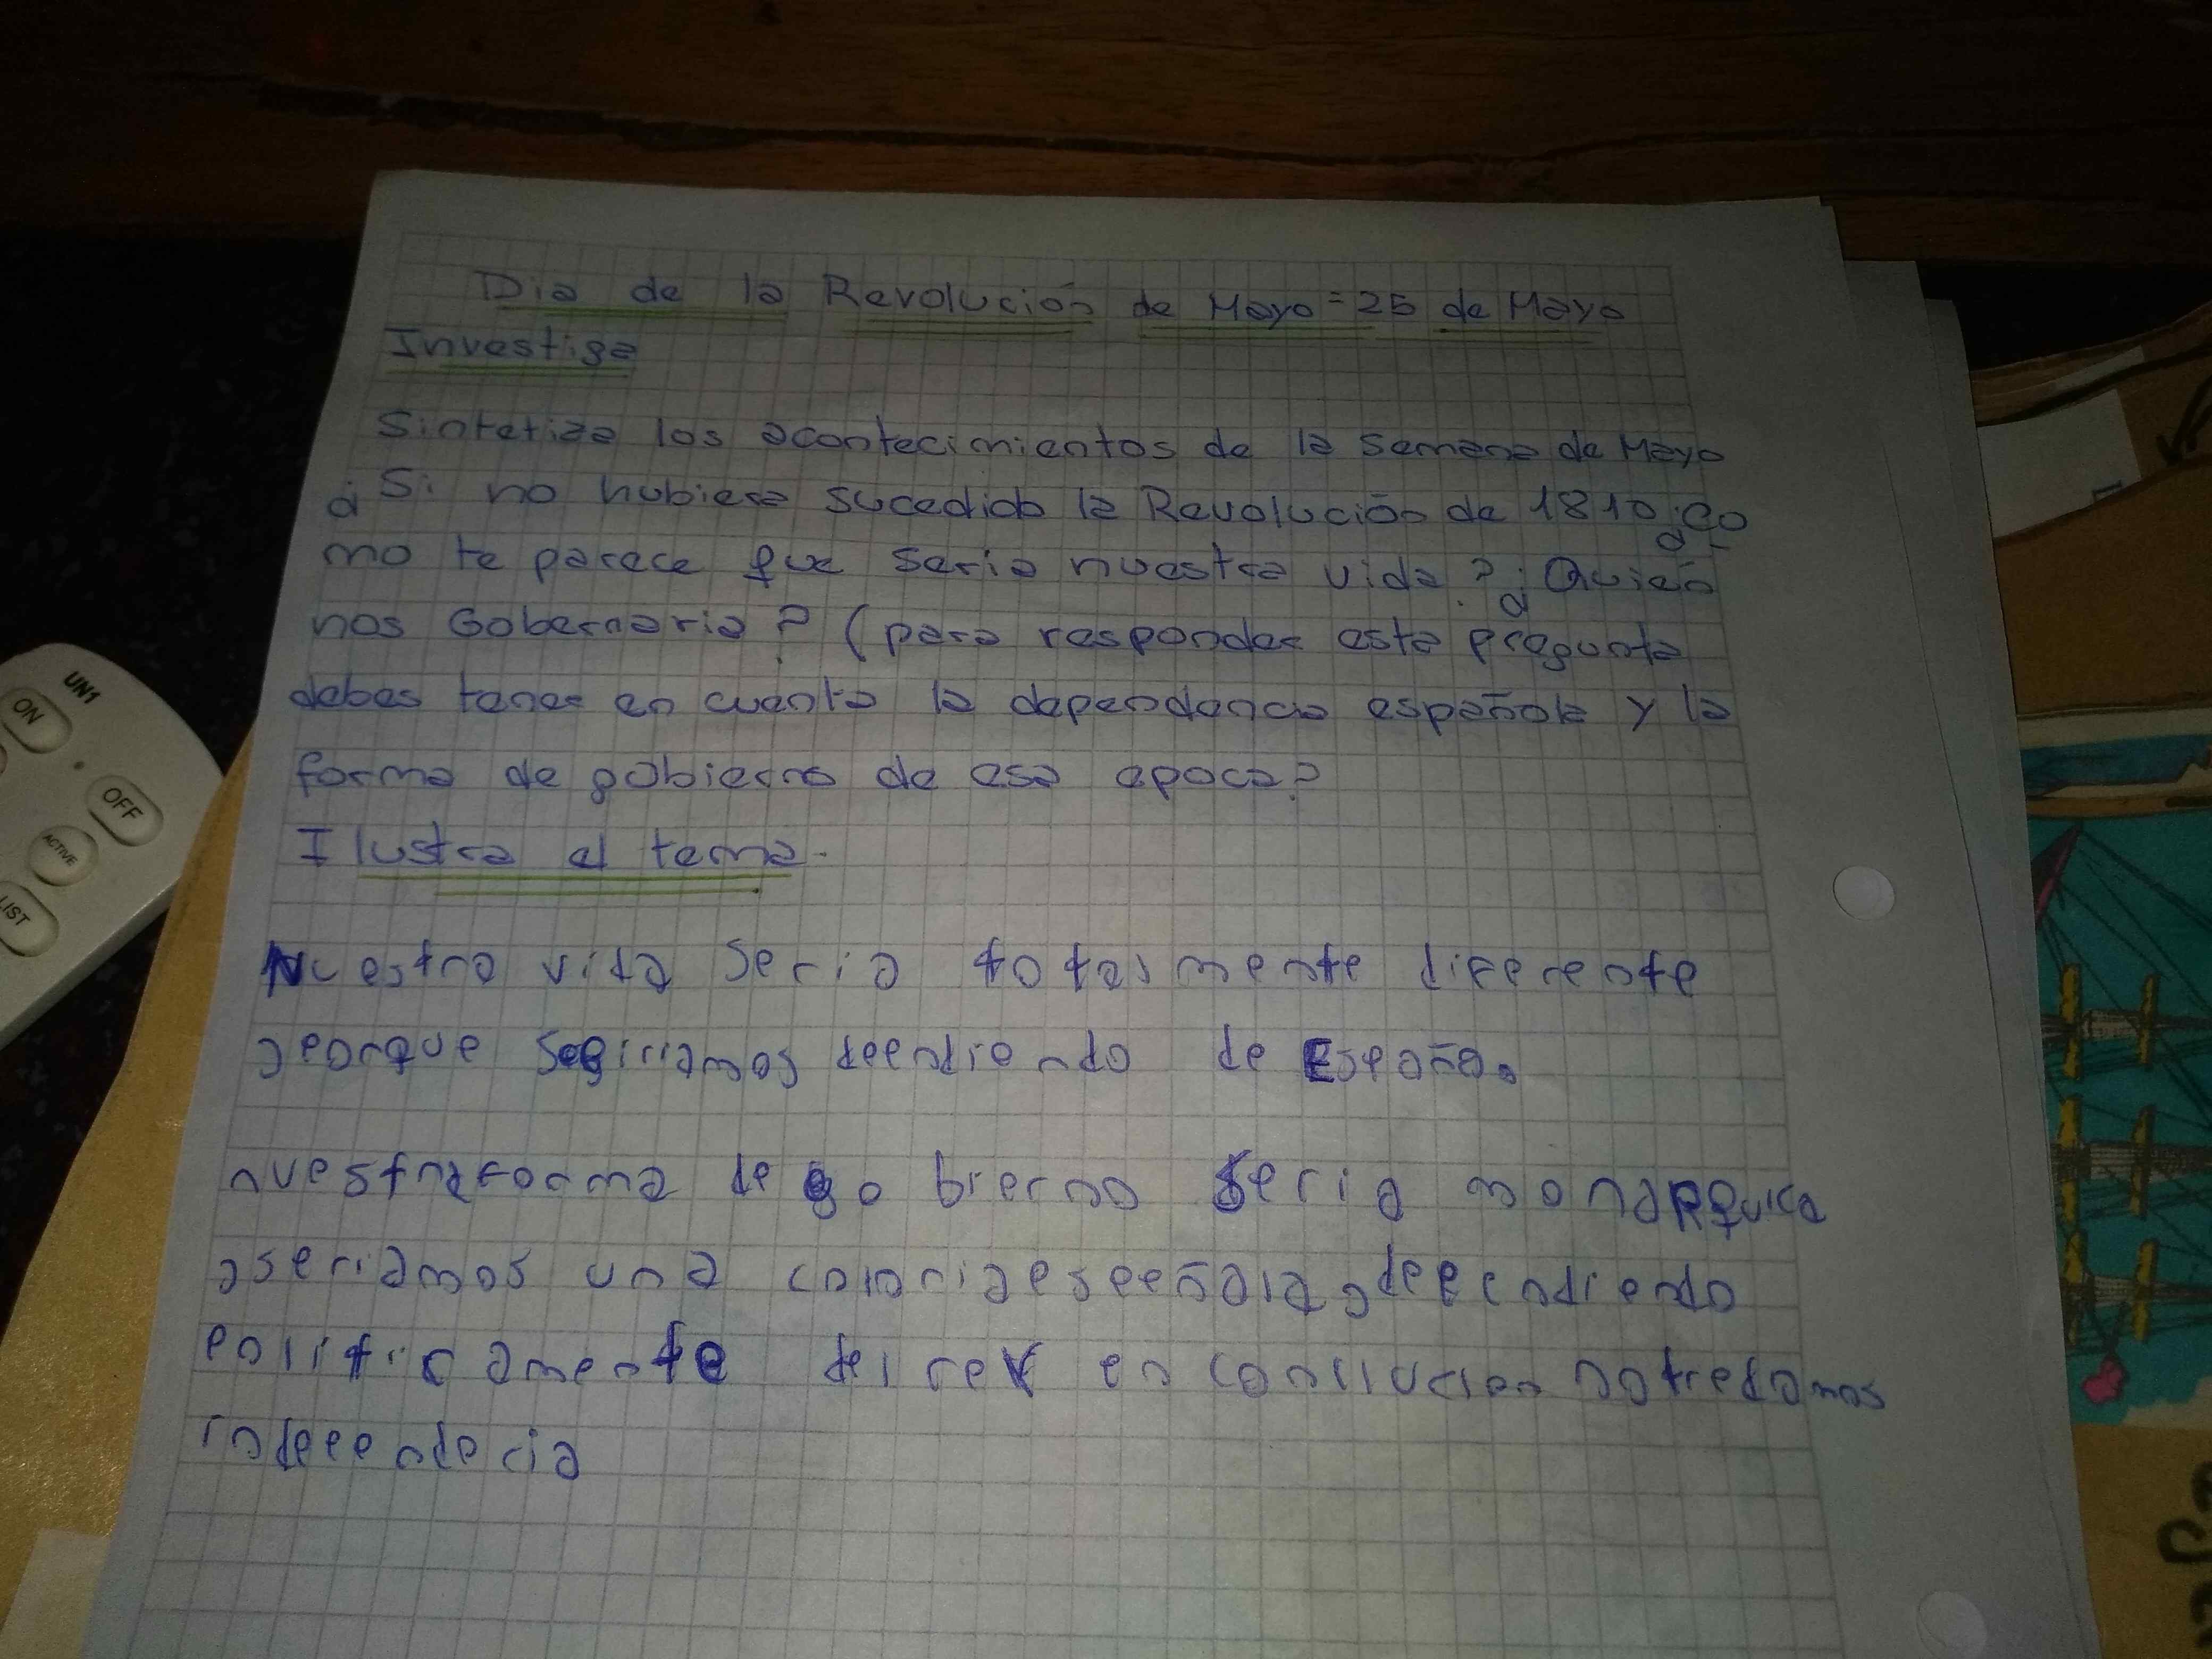 Dia de la Revolución de Mayo = 25 de Mayo
Investiga
Sintetiza los acontecimientos de la semana de Mayo
¿Si no hubiera sucedido la Revolución de 1810 ¿Co
mo te parece que seria nuestra vida? ¿Quién
nos Gobernaria? (para responder esta pregunta
debes tener en cuenta la dependencia española y la
forma de gobierno de esa epoca?
Ilustra el tema.
Nuestra vida seria totalmente diferente
, porque segiriamos deendiendo de España.
nuestra forma de gobierno seria monarquica
, seriamos una colonia española, dependiendo
politicamente del rey en conclucion no tredamos
indepen decia
UN1
ON
OFF
ACTIVE
LIST